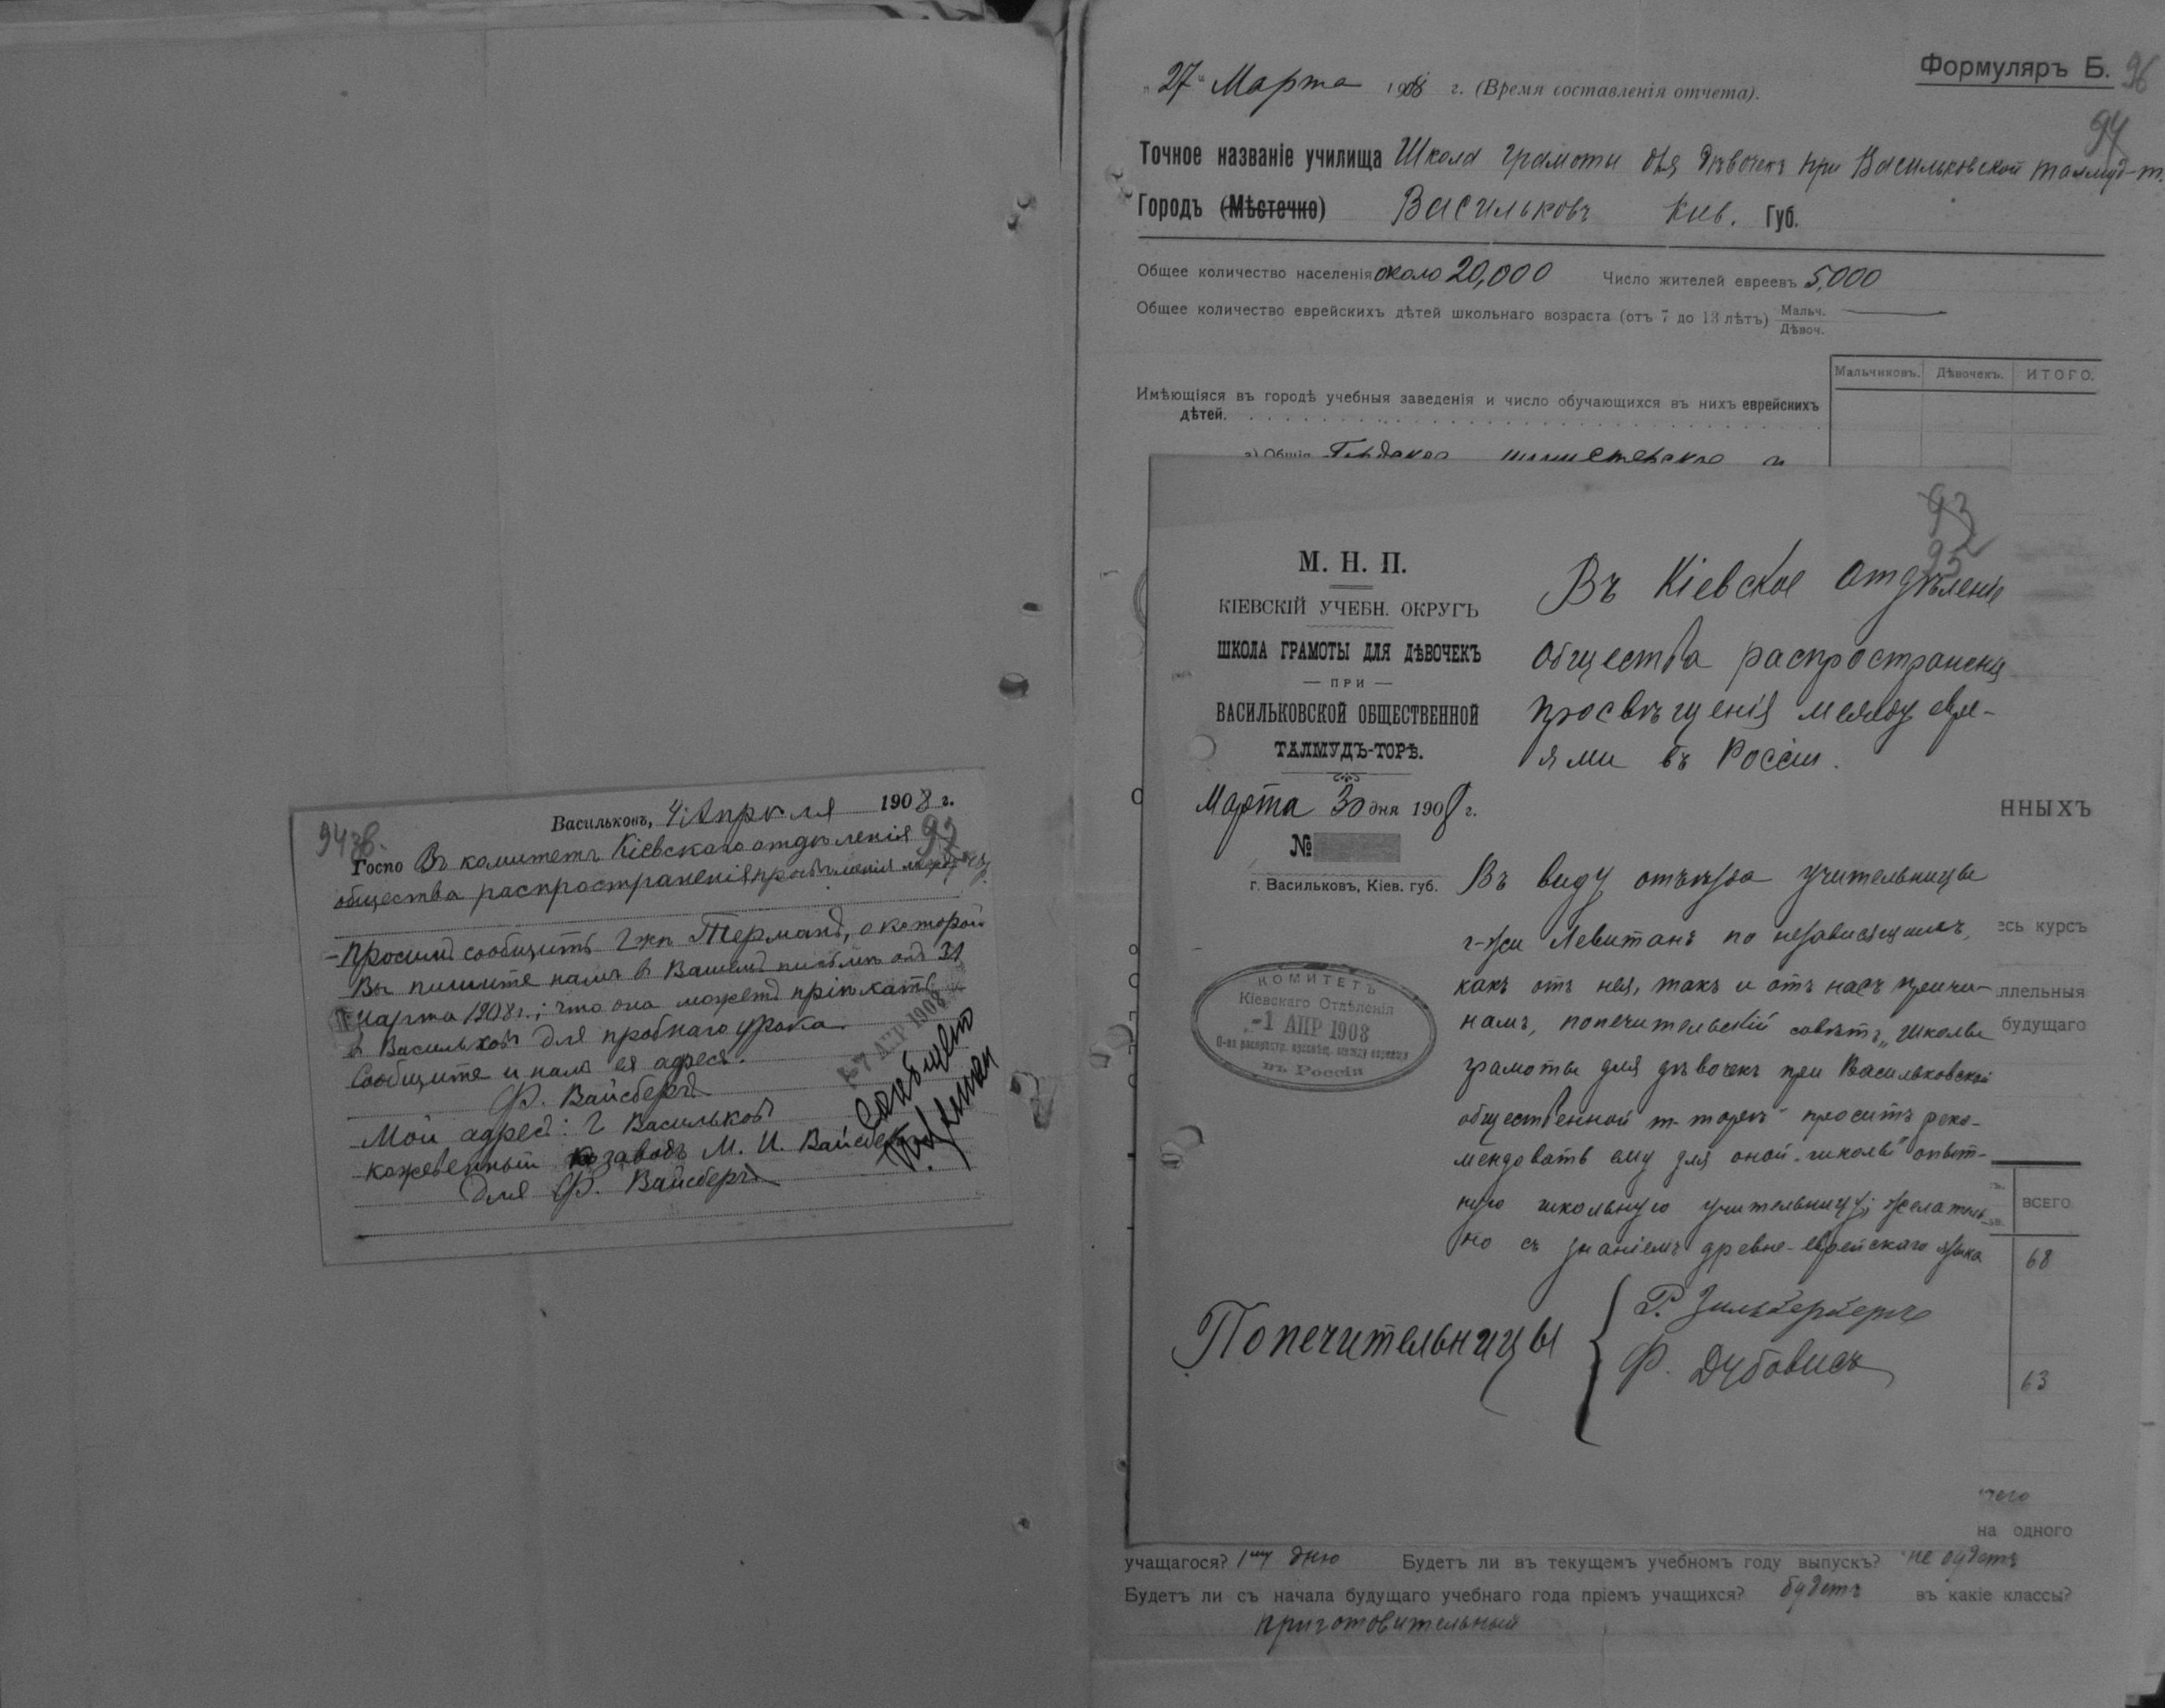 94 об.
Васильковъ, 4 Апрѣля 1908 г.
93
Госпо Въ комитетъ Кіевскаго отдѣленія
общества распространенія просвѣщенія между евр.
Просимъ сообщить Г-жѣ Терманъ, о которой
Вы пишите намъ въ Вашемъ письмѣ отъ 31
марта 1908 г.; что она можетъ пріѣхать
въ Васильковъ для пробнаго урока.
Сообщите и намъ ея адресъ.
Ф. Вайсбергъ
Мой адресъ: г Васильковъ
кожевенный заводъ М. И. Вайсбергъ
для Ф. Вайсбергъ
7 АПР 1908
Сообщено
Формуляръ Б.
96
94
„27“ Марта 1908 г. (Время составленія отчета).
Точное названіе училища Школа грамоты для дѣвочекъ при Васильковской талмуд-т.
Городъ (Мѣстечко) Васильковъ Кив. Губ.
Общее количество населенія около 20,000 Число жителей евреевъ 5,000
Общее количество еврейскихъ дѣтей школьнаго возраста (отъ 7 до 13 лѣтъ) Мальч.
Дѣвоч.
Мальчиковъ. Дѣвочекъ. ИТОГО.
Имѣющіяся въ городѣ учебныя заведенія и число обучающихся въ нихъ еврейскихъ
дѣтей.
а) Общія
93
95
М. Н. П.
КІЕВСКІЙ УЧЕБН. ОКРУГЪ
ШКОЛА ГРАМОТЫ ДЛЯ ДѢВОЧЕКЪ
— ПРИ —
ВАСИЛЬКОВСКОЙ ОБЩЕСТВЕННОЙ
ТАЛМУДЪ-ТОРѢ.
Марта 30 дня 1908 г.
№
г. Васильковъ, Кіев. губ.
Въ Кіевское Отдѣленіе
Общества распространенія
просвѣщенія между евре-
ями въ Россіи.
Въ виду отъѣзда учительницы
г-жи Левитанъ по независящимъ,
какъ отъ нея, такъ и отъ насъ причи-
намъ, попечительскій совѣтъ „школы
грамоты для дѣвочекъ при Васильковской
общественной т-торѣ“ проситъ реко-
мендовать ему для оной школы опыт-
ную школьную учительницу; желатель-
но съ знаніемъ древне-еврейскаго языка
КОМИТЕТЪ
Кіевскаго Отдѣленія
-1 АПР 1908
О-ва распростр. просвѣщ. между евреями
въ Россіи
Попечительницы
Р. Зильберберъ
Ф. Дубовисъ
ННЫХЪ
есь курсъ
ллельныя
будущаго
ВСЕГО
68
63
на одного
учащагося? 1му дню Будетъ ли въ текущемъ учебномъ году выпускъ? не будетъ
Будетъ ли съ начала будущаго учебнаго года пріемъ учащихся? будетъ въ какіе классы?
приготовительный